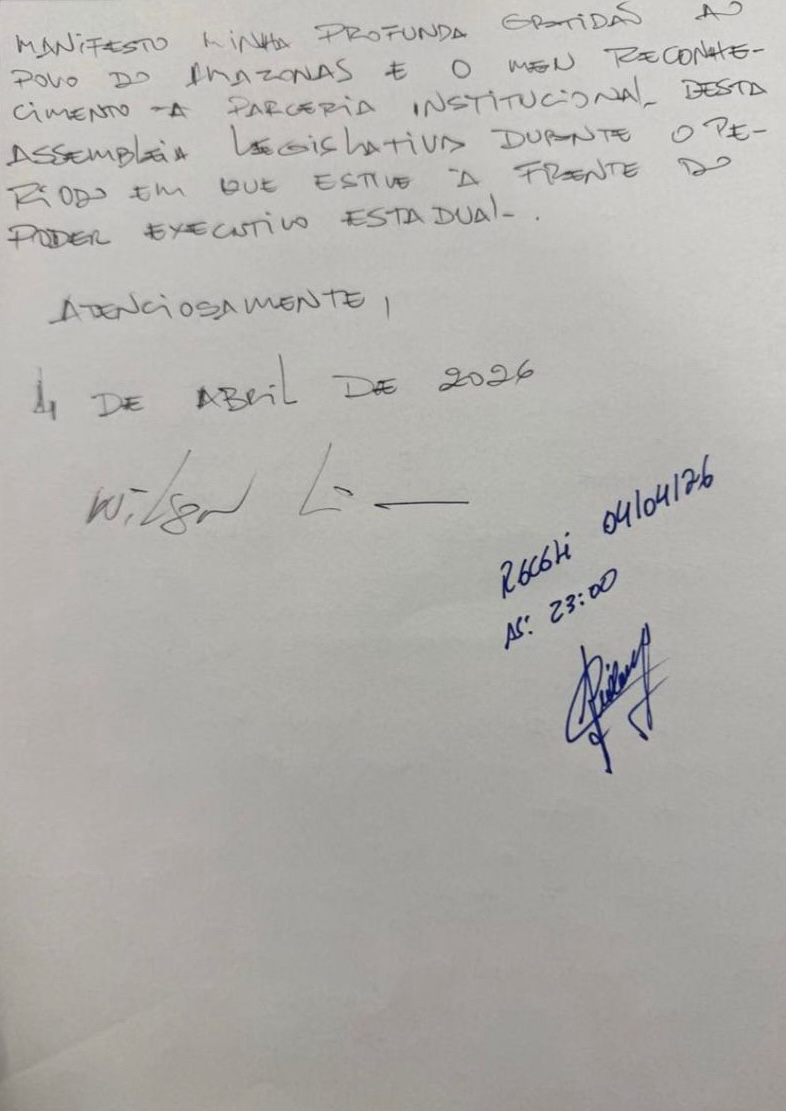 MANIFESTO MINHA PROFUNDA GRATIDÃO AO
POVO DO AMAZONAS E O MEU RECONHE-
CIMENTO À PARCERIA INSTITUCIONAL DESTA
ASSEMBLEIA LEGISLATIVA DURANTE O PE-
RÍODO EM QUE ESTIVE À FRENTE DO
PODER EXECUTIVO ESTADUAL.
ATENCIOSAMENTE,
4 DE ABRIL DE 2026
Wilson Li
Recebi 04/04/26
AS: 23:00